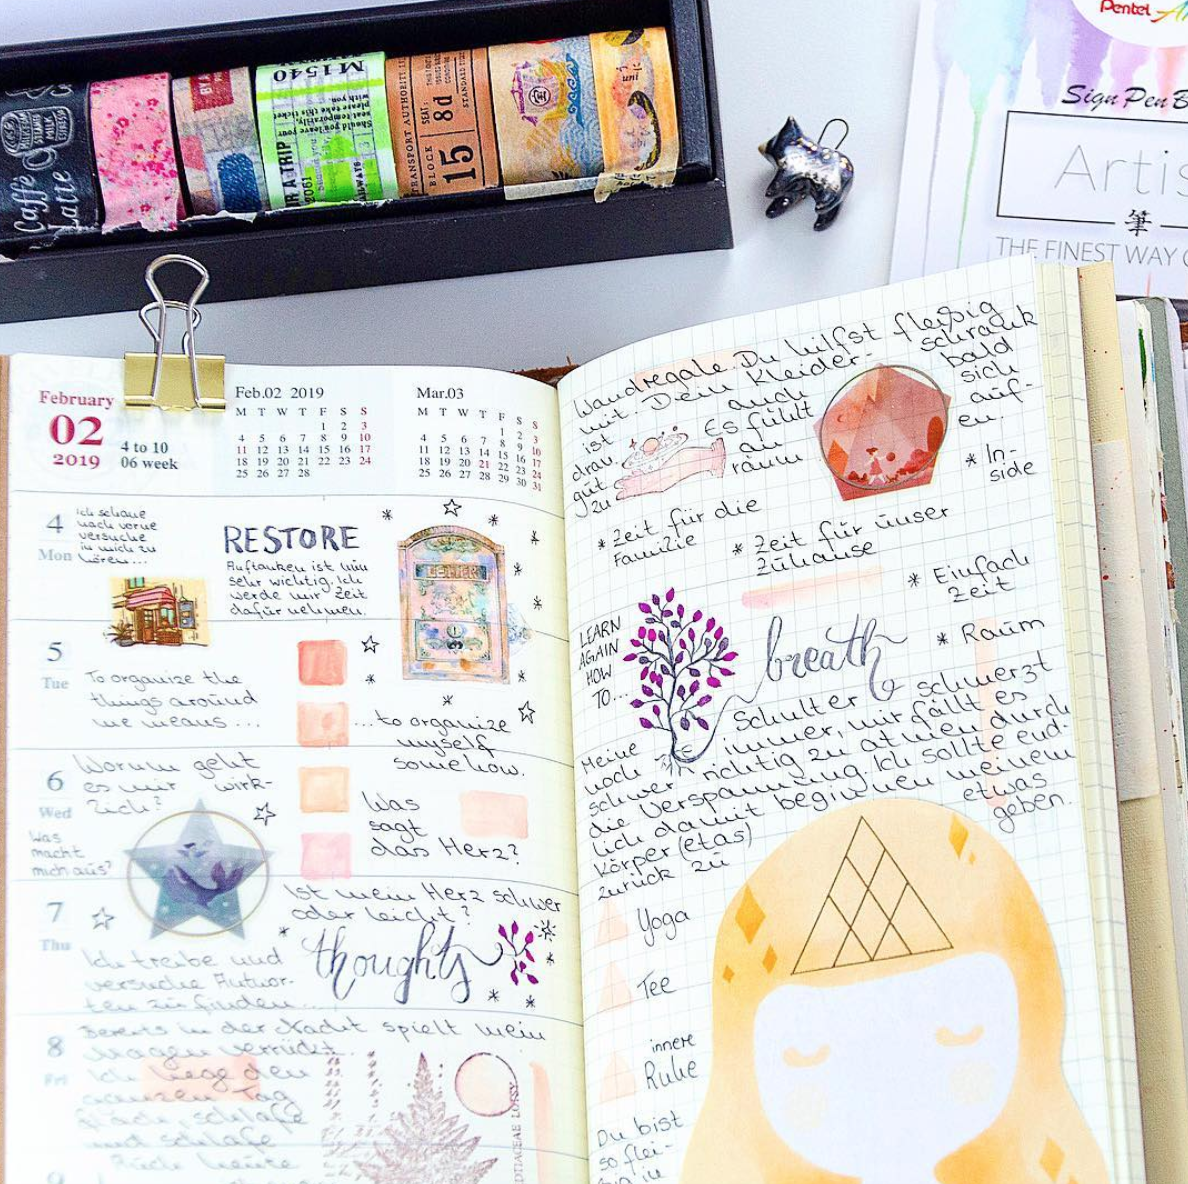 Caffè
Latte
M1540
Should you leave your
seat temporarily,
please take this ticket
with you.
R A TRIP
2061
TRANSPORT AUTHORITY
BLOCK
15
SEAT:
8d
STANDARD
Pentel
Sign Pen B
Artis
筆
THE FINEST WAY
February
02
2019
4 to 10
06 week
Feb.02 2019
M T W T F S S
1 2 3
4 5 6 7 8 9 10
11 12 13 14 15 16 17
18 19 20 21 22 23 24
25 26 27 28
Mar.03
M T W T F S S
1 2 3
4 5 6 7 8 9 10
11 12 13 14 15 16 17
18 19 20 21 22 23 24
25 26 27 28 29 30 31
4
Mon
Ich schaue
nach vorne
versuche
in mich zu
hören...
RESTORE
Auftanken ist nun
sehr wichtig. Ich
werde mir Zeit
dafür nehmen.
LETTER
5
Tue
To organize the
things around
we means ...
...to organize
myself
somehow.
6
Wed
Worum geht
es mir wirk-
lich?
Was
macht
mich aus?
Was
sagt
das Herz?
7
Thu
Ist mein Herz schwer
oder leicht?
thoughts
Ich treibe und
versuche Antwor-
ten zu finden...
8
Fri
Bereits in der Nacht spielt mein
Magen verrückt.
Ich liege den
ganzen Tag
flach, schlafe
und schlafe
Auch heute
9
Wandregale. Du hilfst fleißig
mit. Dein Kleider- schrank
ist auch bald
dran. Es fühlt sich
gut an auf-
zu räum en.
* In-
side
* Zeit für die
Familie
* Zeit für unser
Zuhause
* Einfach
Zeit
* Raum
LEARN
AGAIN
HOW
TO...
breath
Meine Schulter schmerzt
noch immer, mir fällt es
schwer richtig zu atmen durch
die Verspannung. Ich sollte end-
lich damit beginnen meinem
Körper (etas) etwas
zurück zu geben.
Yoga
Tee
innere
Ruhe
Du bist
so flei-
ßig